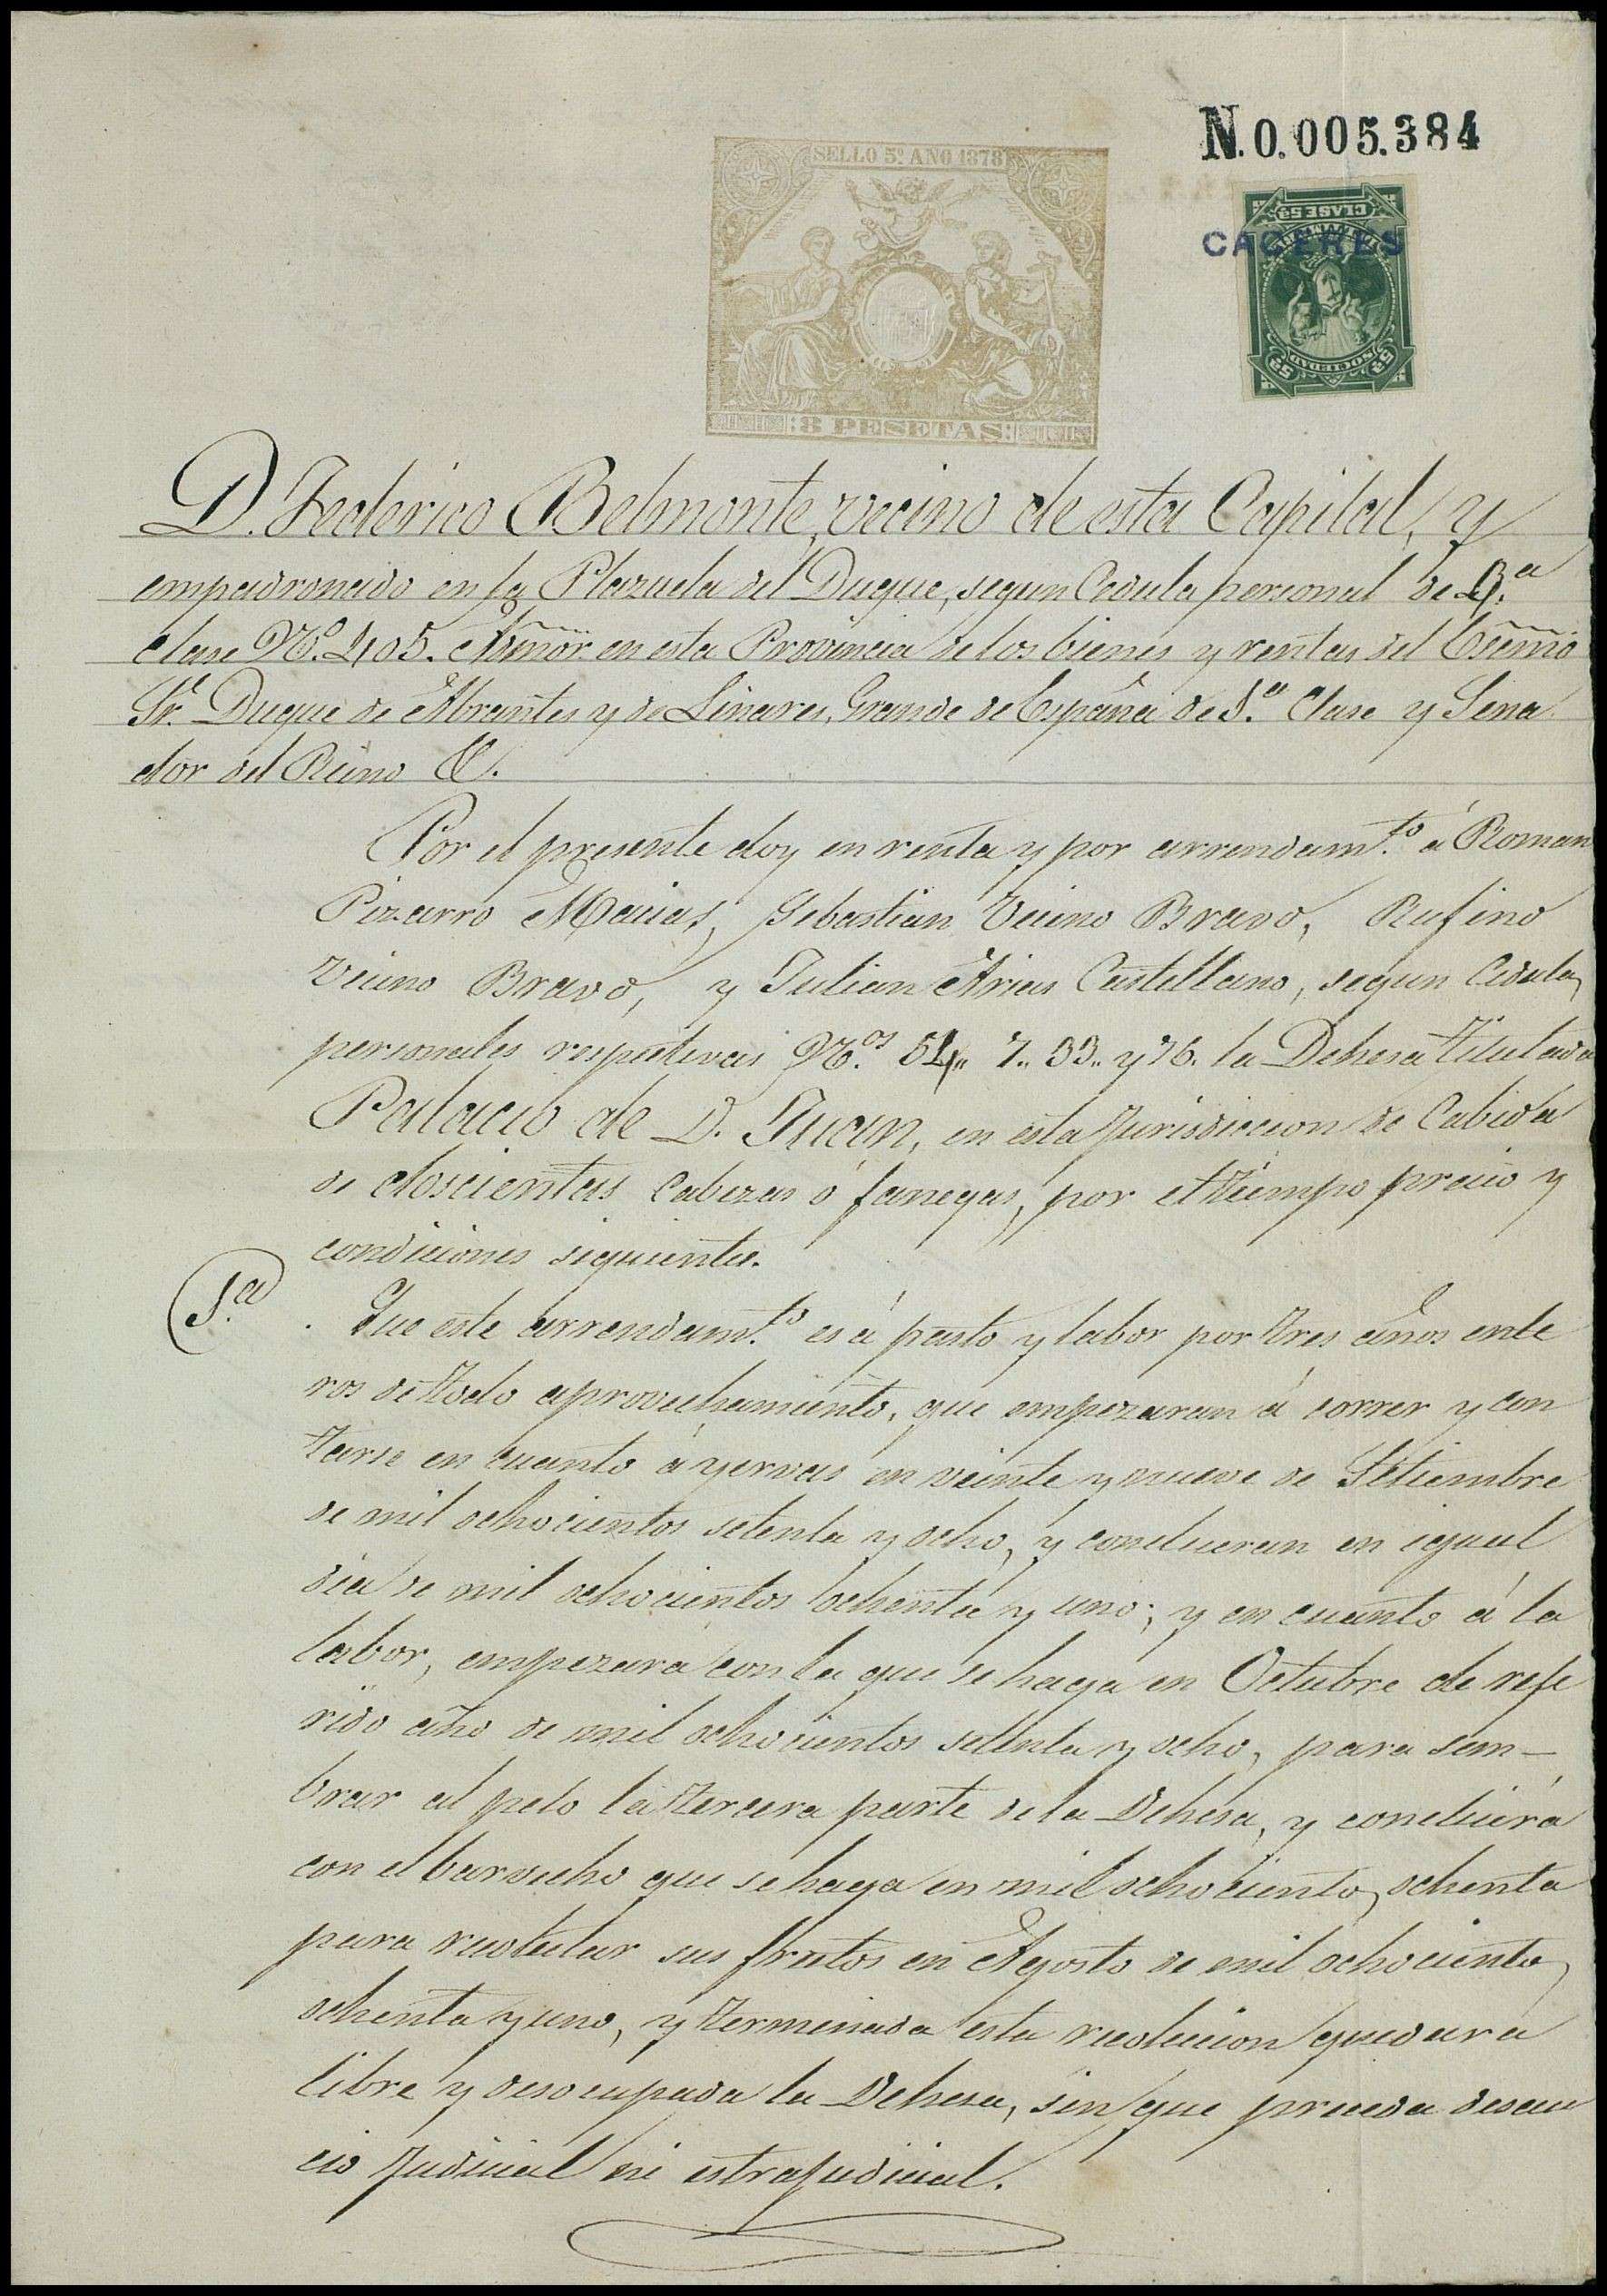 N.0.005.384
SELLO 5º AÑO 1878
CLASE 5ª
CACERES
SOCIEDAD
5ª 5ª
8 PESETAS
D. Federico Belmonte, vecino de esta Capital, y
empadronado en la Plazuela del Duque, segun Cedula personal de
clase Nº. 405. Admōr. en esta Provincia de los bienes y rentas del Escmō
Sr. Duque de Abrantes y de Linares, Grande de España de 1.ª Clase y Sena
dor del Reino &.
Por el presente doy en renta y por arrendam.to á Roman
Pizarro Macias, Sebastian Vecino Bravo, Rufino
Vecino Bravo, y Julian Arias Castellano, segun Cedulas
personales respectivas N.os 54,, 7,, 33,, y 76. la Dehesa titulada
Palacio de D. Juan, en esta Jurisdiccion de Cabida
de doscientas Cabezas ó fanegas, por el tiempo precio y
condiciones siguientes.
1.ª . Que este arrendam.to es á pasto y labor por tres años ente
ros de todo aprovechamiento, que empezaran á correr y con
tarse en cuanto á yervas en veinte y nueve de Setiembre
de mil ochocientos setenta y ocho, y concluiran en igual
dia de mil ochocientos ochenta y uno; y en cuanto á la
labor, empezará con la que se haga en Octubre de refe
rido año de mil ochocientos setenta y ocho, para sem-
brar al pelo la tercera parte de la Dehesa, y concluirá
con el barvecho que se haga en mil ochocientos ochenta
para recolectar sus frutos en Agosto de mil ochocientos
ochenta y uno, y terminada esta recoleccion quedara
libre y desocupada la Dehesa, sin que preceda desau
cio judicial ni estrajudicial.